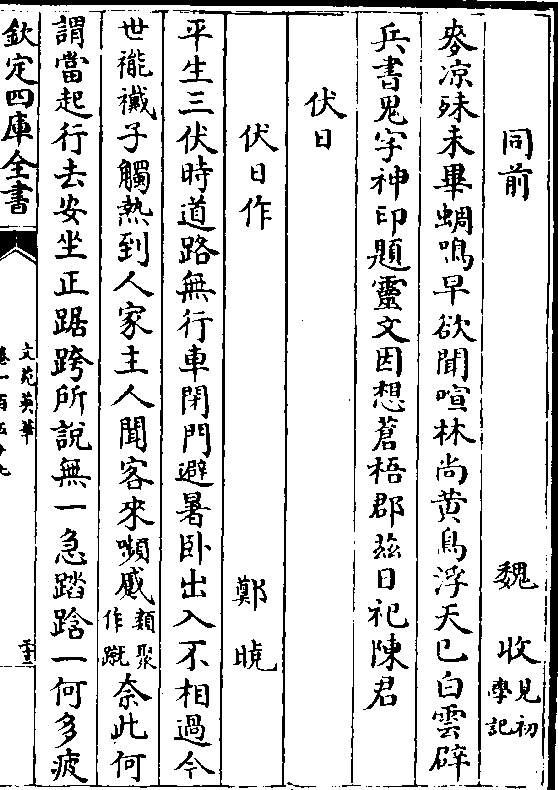 同前　魏　收見初學記
麥凉殊未畢蜩鳴早欲聞喧林尚黄鳥浮天已白雲辟
兵書鬼字神印題靈文因想蒼梧郡兹日祀陳君
伏日
伏日作　鄭　曉
平生三伏時道路無行車閉門避暑卧出入不相過今
世褦襶子觸熱到人家主人聞客來嚬慼類聚作蹴奈此何
謂當起行去安坐正踞跨所說無一急踏𨂁一何多疲
欽定四庫全書
文苑英華
卷一百五十七